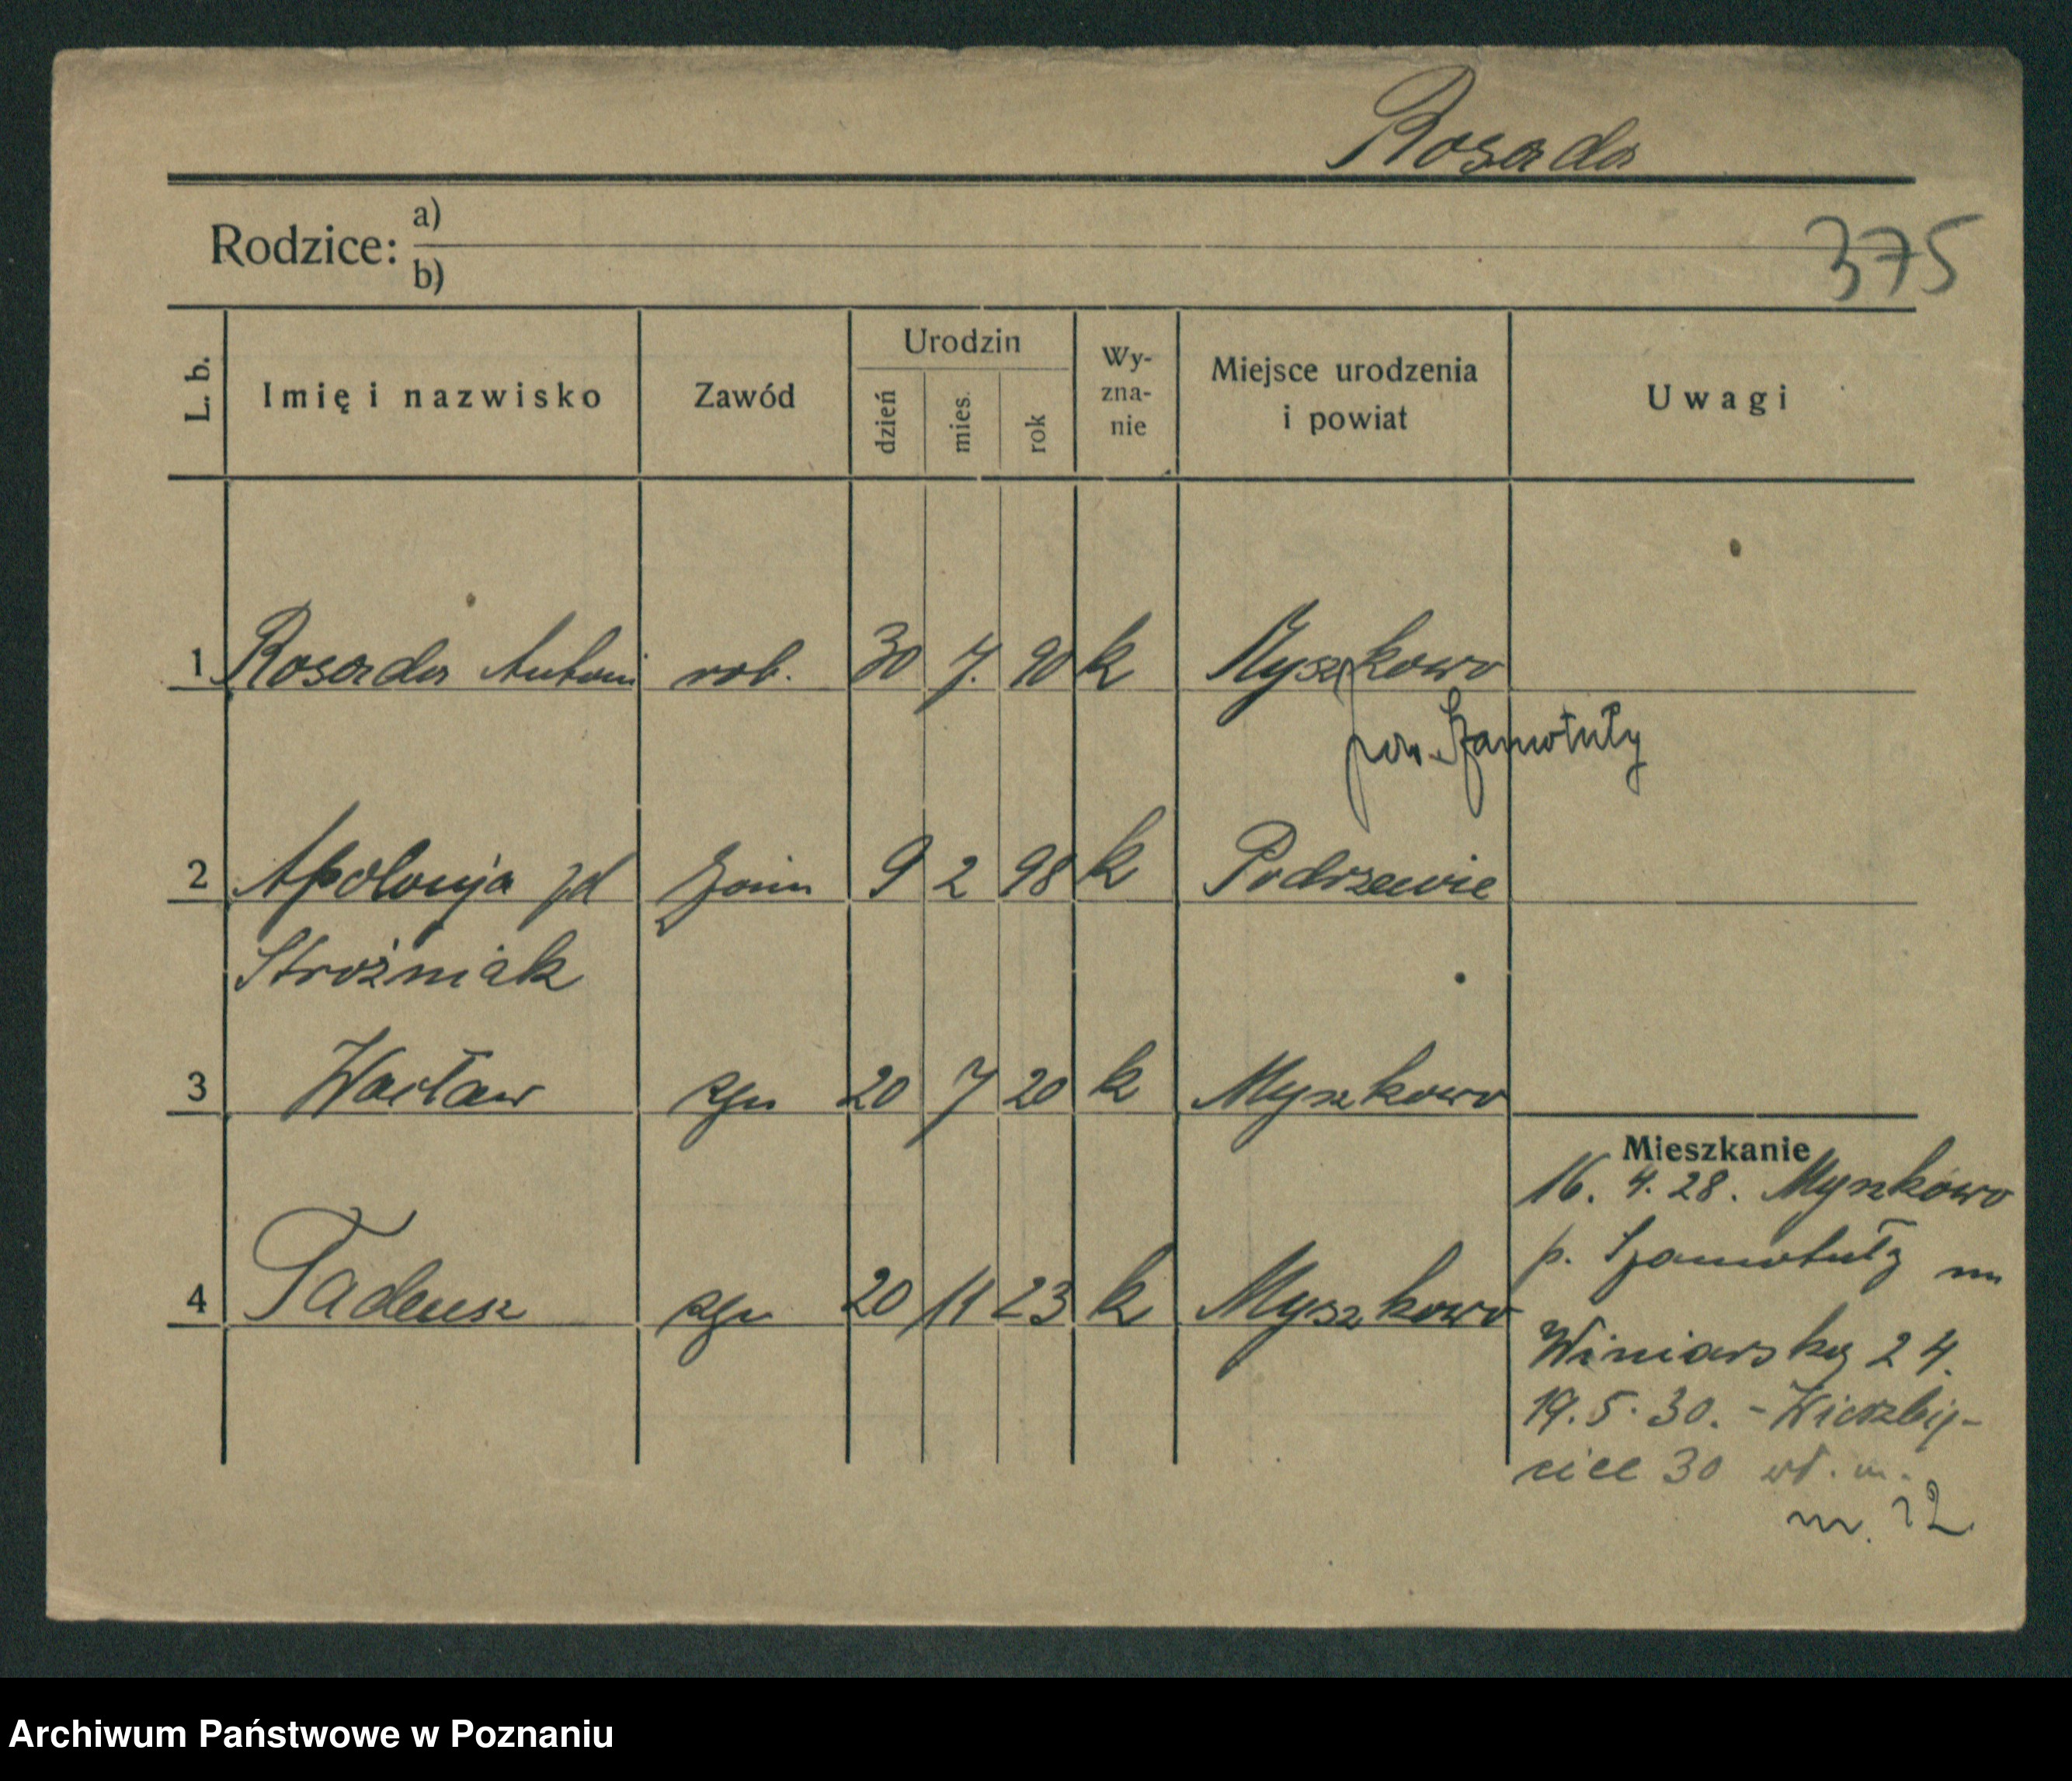 Rosada
Rodzice: a)
b)
375
L. b. Imię i nazwisko Zawód Urodzin dzień mies. rok Wy-zna-nie Miejsce urodzenia i powiat Uwagi
1 Rosada Antoni rob. 30 7. 90 k Myszkowo
pow. Szamotuły
2 Apolonja zd 9 2 98 k Podrzewie
Stroźniak
3 Wacław 20 7 20 k Myszkowo
Mieszkanie
16. 4. 28. Myszkowo
p. Szamotuły
4 Tadeusz 20 11 23 k Myszkowo
Winiarsky 24.
19. 5. 30. - Wierzbię-
cice 30
m. 12
Archiwum Państwowe w Poznaniu